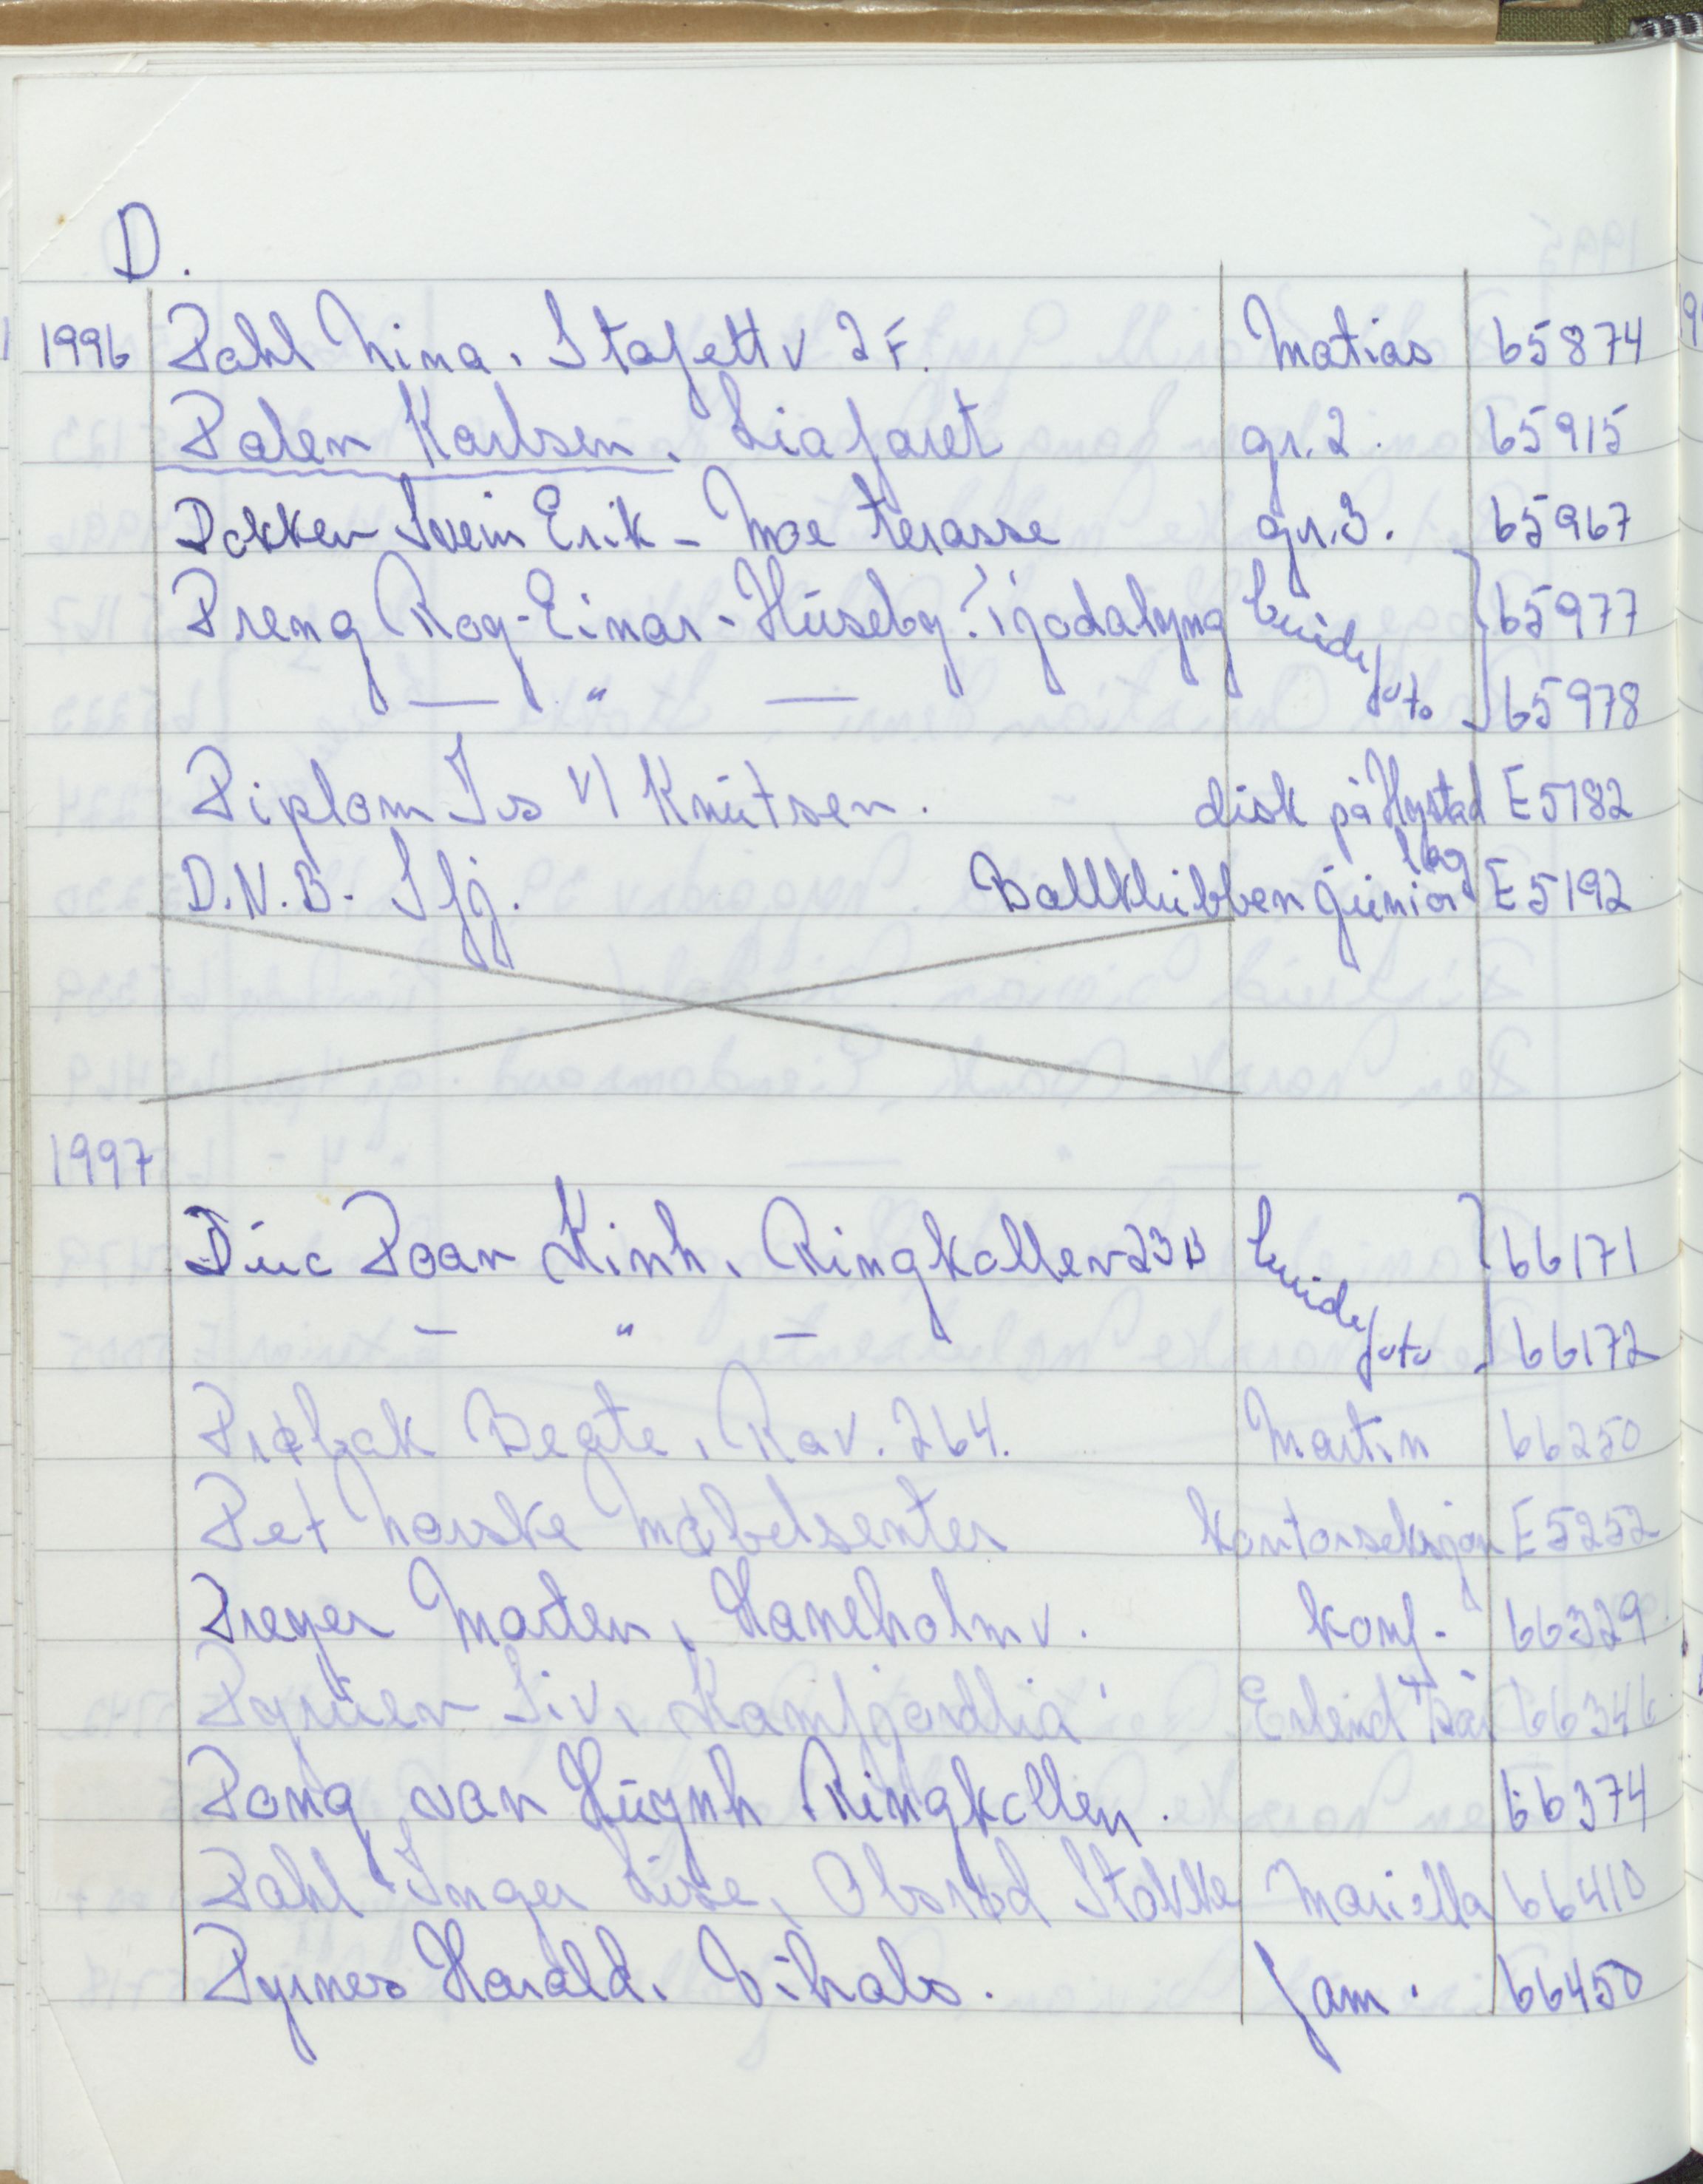 D.
1996 Dahl Nina, Stafettv 2F. Matias 65874
Dalen Karlsen, Liafaret gr. 2. 65915
Dokken Svein Erik - Moe terasse gr. 3. 65967
Dreng Roy-Einar - Huseby! Tjodalyng brude 65977
— " — foto 65978
Diplom Is v/ Knutsen. disk på Hystad E5182
D.N.B. Sfj. Ballklubben junior lag E5192
1997
Duc Doan Kinh, Ringkollen 23B brude 66171
— " — foto 66172
Drøbak Beate, Rav. 264. Martin 66250
Det norske møbelsenter kontorseksjon E5252
Dreyer Morten, Haneholmv. konf. 66329
Siv, Kamfjordlia Erlend + 66346
Dong van Huynh Ringkollen. 66374
Dahl Inger Lise, Olsrød Stokke Mariella 66410
Dyrnes Harald, Virhals. fam. 66450